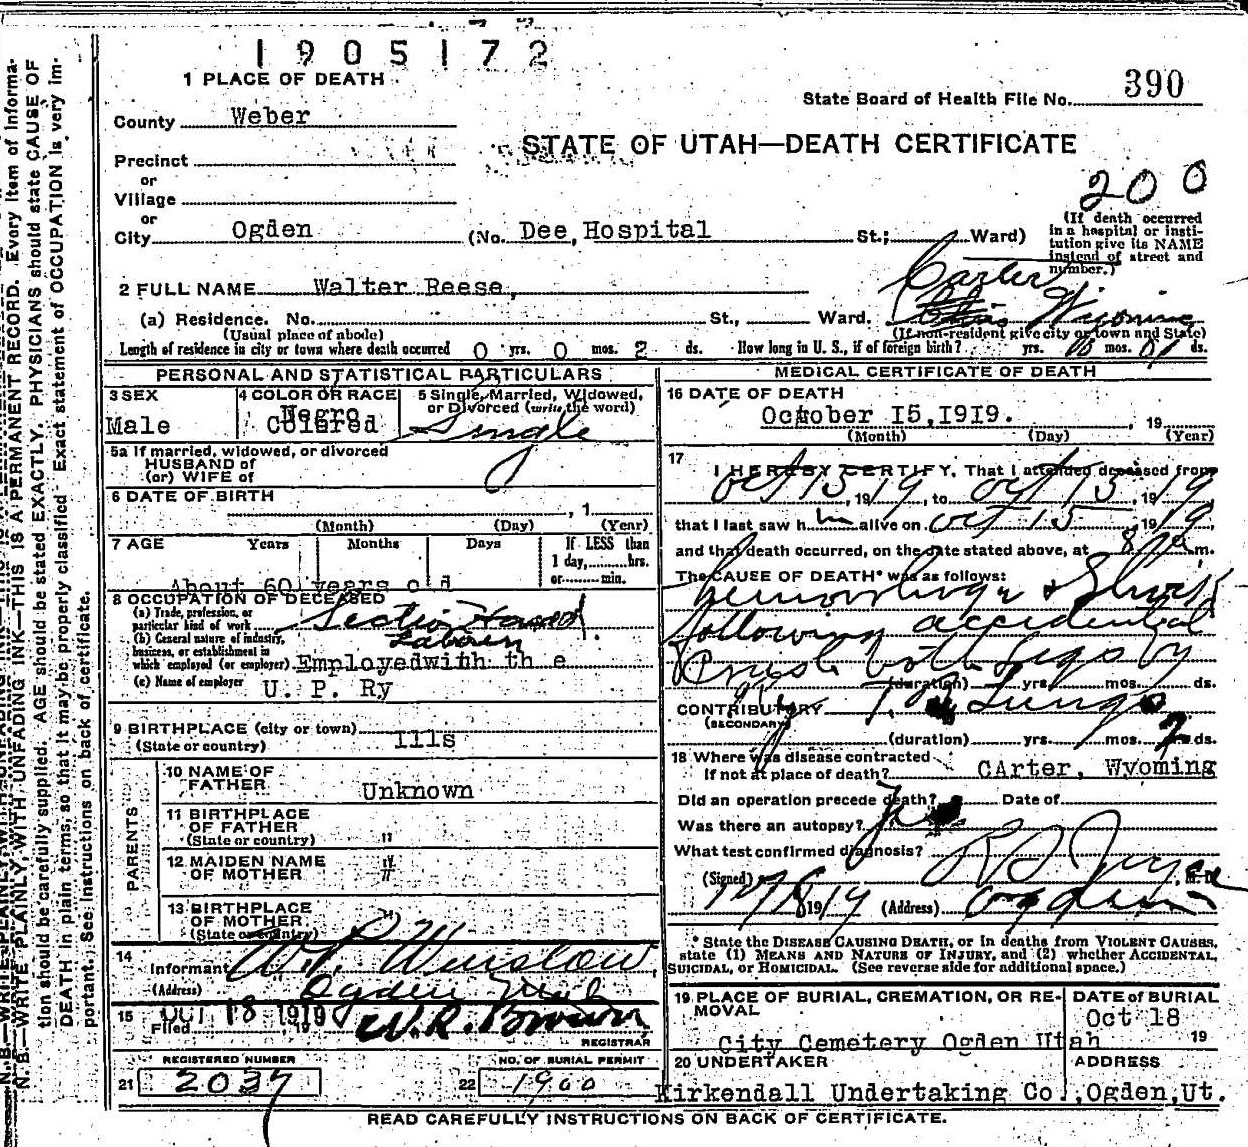 1905172
1 PLACE OF DEATH
State Board of Health File No. 390
County Weber
STATE OF UTAH—DEATH CERTIFICATE
Precinct
or
Village
200
or
City Ogden (No. Dee, Hospital St.; Ward)
(If death occurred in a hospital or institution give its NAME instead of street and number.)
2 FULL NAME Walter Reese,
Carter
(a) Residence. No. St., Ward. Wyoming
(Usual place of abode) (If non-resident give city or town and State)
Length of residence in city or town where death occurred 0 yrs. 0 mos. 2 ds. How long in U. S., if of foreign birth? yrs. mos. ds.
PERSONAL AND STATISTICAL PARTICULARS
3 SEX 4 COLOR OR RACE 5 Single, Married, Widowed, or Divorced (write the word)
Negro
Male Colored Single
5a If married, widowed, or divorced
HUSBAND of
(or) WIFE of
6 DATE OF BIRTH
, 1
(Month) (Day) (Year)
7 AGE Years Months Days If LESS than
1 day, hrs.
or min.
About 60 years old
8 OCCUPATION OF DECEASED
(a) Trade, profession, or particular kind of work Section Hand
Laborer
(b) General nature of industry, business, or establishment in which employed (or employer) Employedwith the
(c) Name of employer U. P. Ry
9 BIRTHPLACE (city or town)
(State or country) Ills
PARENTS
10 NAME OF FATHER Unknown
11 BIRTHPLACE OF FATHER (State or country) "
12 MAIDEN NAME OF MOTHER "
13 BIRTHPLACE OF MOTHER (State or country) "
14
Informant W. P. Winslow
(Address) Ogden Utah
15 Filed OCT 18 1919 19 W. R. Brown
REGISTRAR
REGISTERED NUMBER NO. OF BURIAL PERMIT
21 2037 22 1900
MEDICAL CERTIFICATE OF DEATH
16 DATE OF DEATH
October 15,1919. , 19
(Month) (Day) (Year)
17 I HEREBY CERTIFY, That I attended deceased from
Oct 15, 19 19, to Oct 15, 19 19
that I last saw him alive on Oct 15, 19 19
and that death occurred, on the date stated above, at 8 m.
The CAUSE OF DEATH* was as follows:
hemorrhage & Shock
following accidental
both legs by
(duration) yrs. mos. ds.
CONTRIBUTORY Lungs
(SECONDARY)
(duration) yrs. mos. 2 ds.
18 Where was disease contracted
If not at place of death? CArter, Wyoming
Did an operation precede death? Date of
Was there an autopsy?
What test confirmed diagnosis?
(Signed)
19 19 (Address) Ogden
* State the DISEASE CAUSING DEATH, or in deaths from VIOLENT CAUSES,
state (1) MEANS AND NATURE OF INJURY, and (2) whether ACCIDENTAL,
SUICIDAL, or HOMICIDAL. (See reverse side for additional space.)
19 PLACE OF BURIAL, CREMATION, OR REMOVAL DATE of BURIAL
Oct 18
City Cemetery Ogden Utah 19
20 UNDERTAKER ADDRESS
Kirkendall Undertaking Co.,Ogden,Ut.
READ CAREFULLY INSTRUCTIONS ON BACK OF CERTIFICATE.
N. B.—WRITE PLAINLY, WITH UNFADING INK—THIS IS A PERMANENT RECORD. Every item of informa-
tion should be carefully supplied. AGE should be stated EXACTLY. PHYSICIANS should state CAUSE OF
DEATH in plain terms, so that it may be properly classified. Exact statement of OCCUPATION is very im-
portant. See instructions on back of certificate.